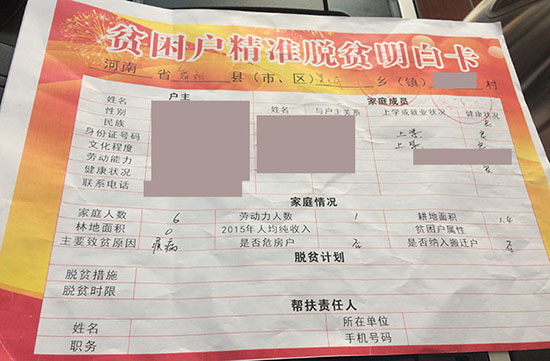 贫困户精准脱贫明白卡
河南 省 县(市、区) 乡(镇) 村
户主 家庭成员
姓名 姓名 与户主关系 上学或就业状况 健康状况
性别
民族 上学
身份证号码 上学
文化程度
劳动能力
健康状况
联系电话
家庭情况
家庭人数 6 劳动力人数 1 耕地面积 1.4
林地面积 0 2015年人均纯收入 贫困户属性
主要致贫原因 疾病 是否危房户 否 是否纳入搬迁户 否
脱贫计划
脱贫措施
脱贫时限
帮扶责任人
姓名 所在单位
职务 手机号码